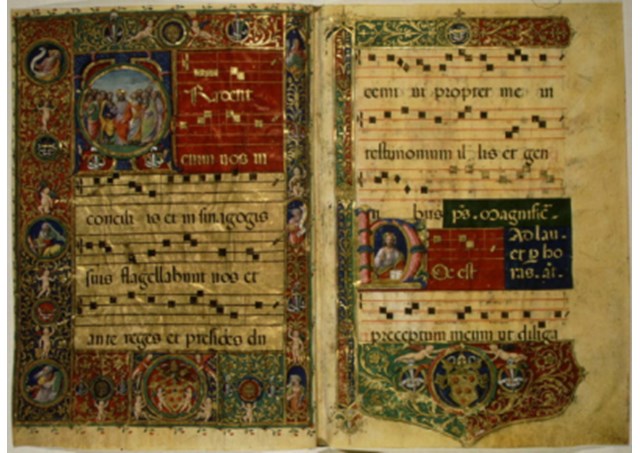 TRadent
enim vos in
concili is et in sinagogis
suis flagellabunt vos et
ante reges et presides du
cemi ni propter me in
testimonium il lis et gen
ti bus ps. Magnific̄.
Ad lau.
et p ho
HOc est ras. añ.
preceptum meum ut diliga